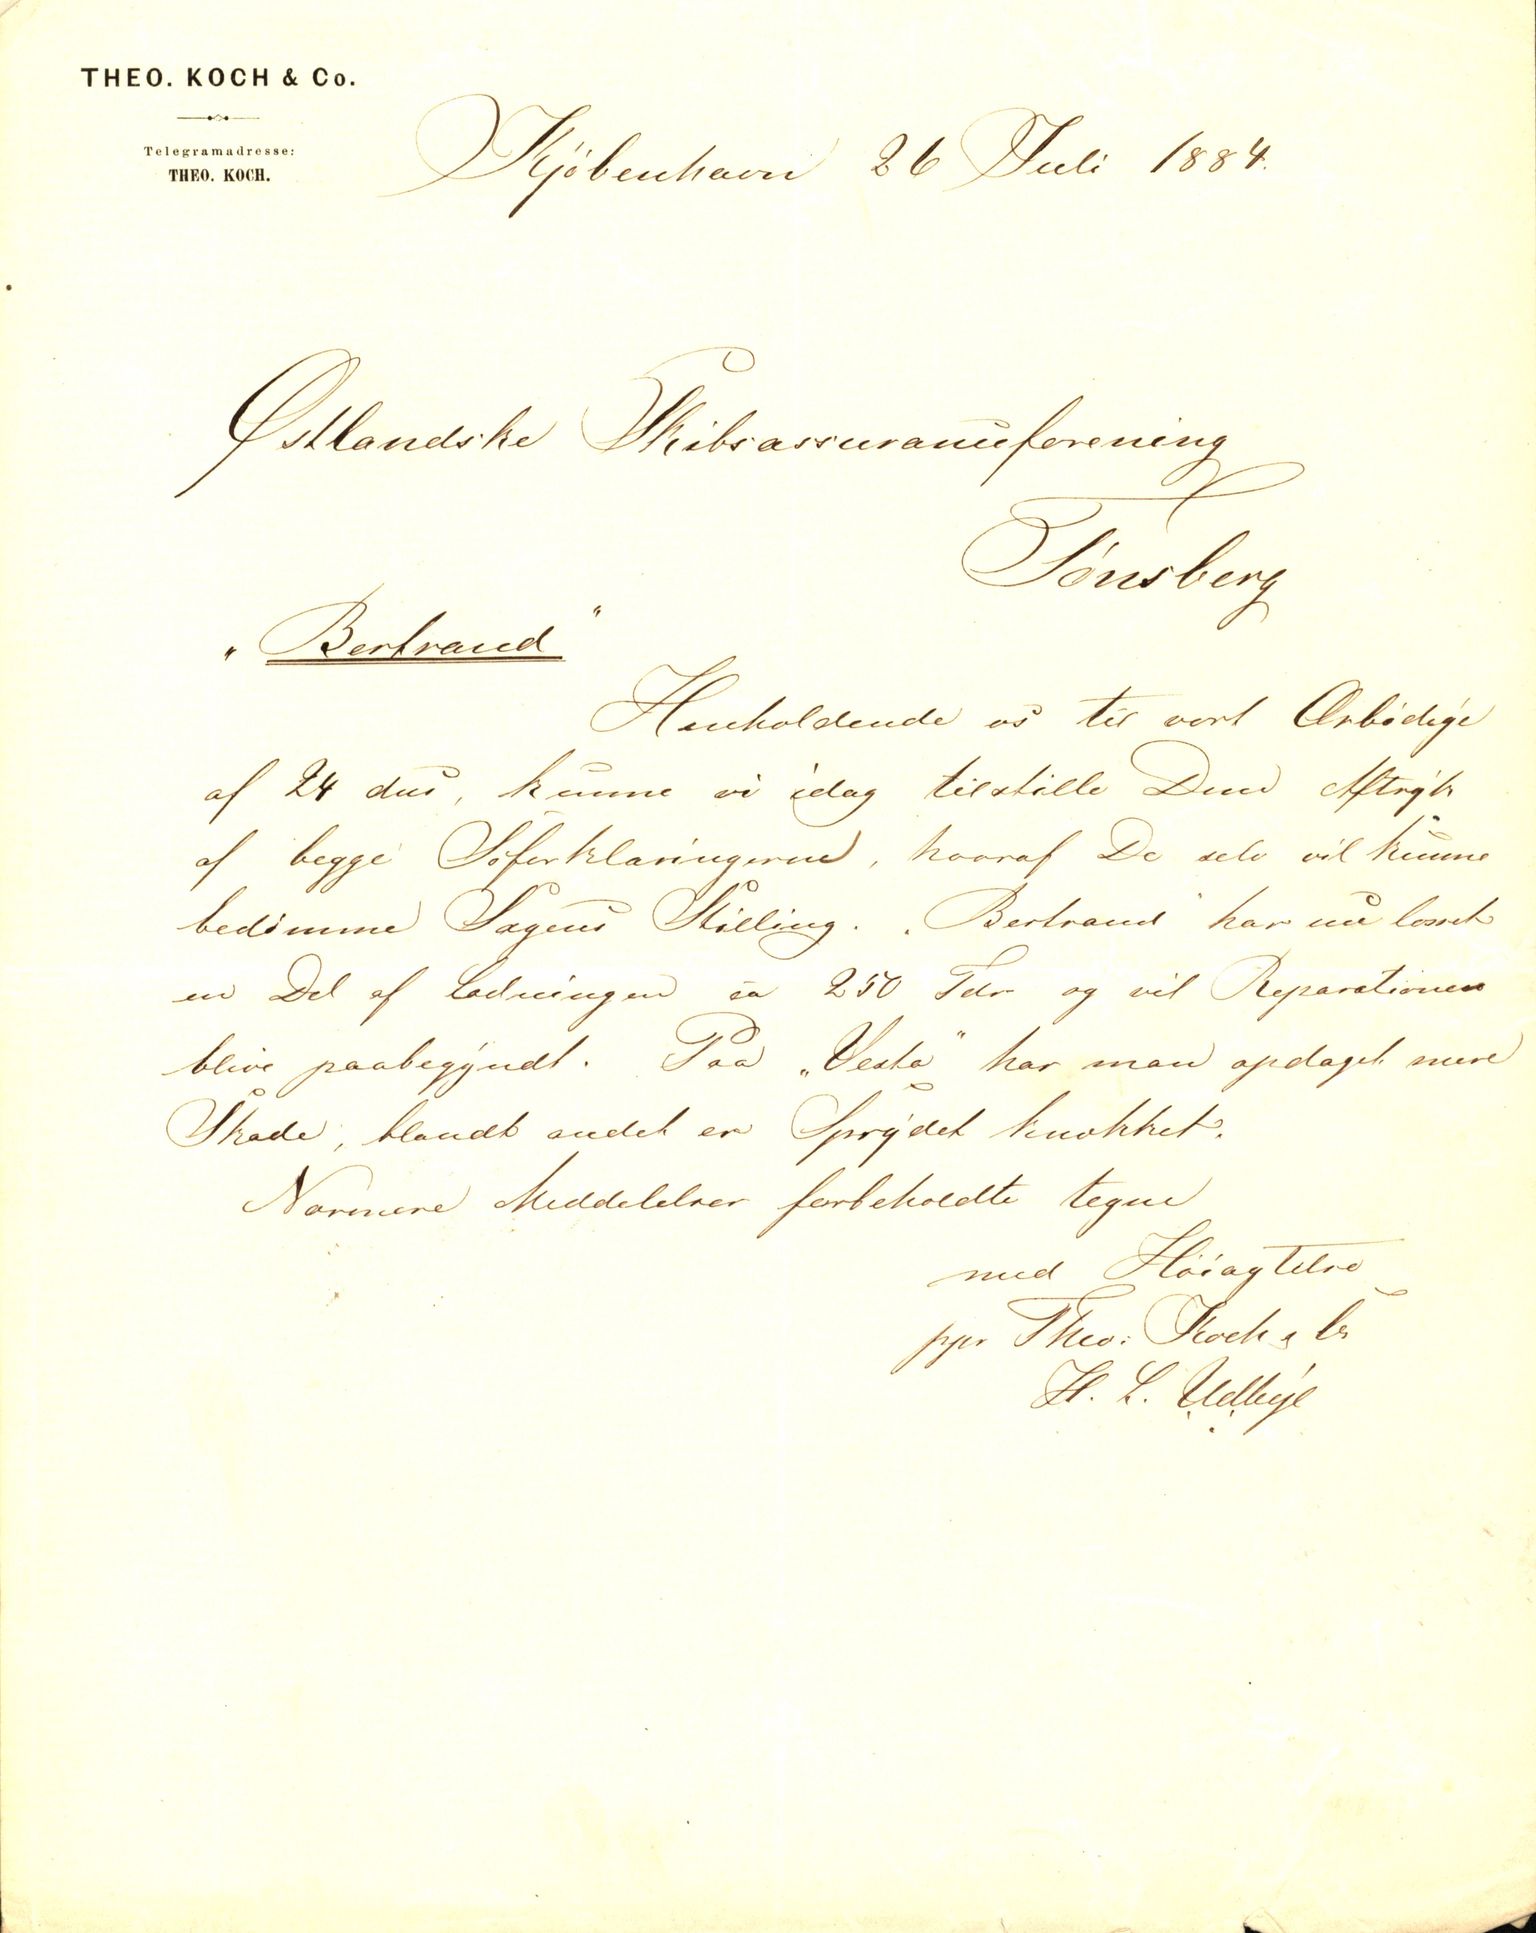 THEO. KOCH & Co.
Telegramadresse:
THEO. KOCH.
Kjöbenhavn 26 Juli 1884.
Østlandske Skibsassuranceforening
Tönsberg
„Bertrand"
Henholdende os til vort Ærbödige
af 24 dns, kunne vi idag tilstille Dem Aftryk
af begge Söforklaringerne, hvoraf De selv vil kunne
bedömme Sagens Stilling. „Bertrand" har nu losset
en Del af Ladningen ca 250 Tdr og vil Reparationen
blive paabegyndt. Paa „Vesta" har man opdaget mere
Skade, blandt andet er Sprydet knækket.
Nærmere Meddelelser forbeholdte tegne
med Höiagtelse
ppr Theo: Koch & Co
H. L. Udbye